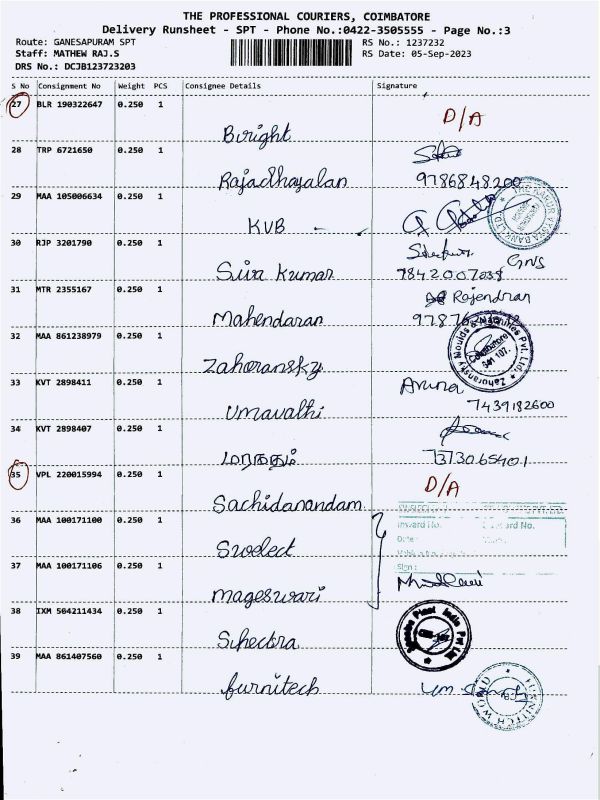 THE PROFESSIONAL COURIERS, COIMBATORE
Delivery Runsheet - SPT - Phone No.:0422-3505555 - Page No.:3
Route: GANESAPURAM SPT RS No.: 1237232
Staff: MATHEW RAJ.S RS Date: 05-Sep-2023
DRS No.: DCJB123723203
S No Consignment No Weight PCS Consignee Details Signature
27 BLR 190322647 0.250 1 Bright D/A
28 TRP 6721650 0.250 1 Rajadhayalan 9786848200
29 MAA 105006634 0.250 1 KVB
30 RJP 3201790 0.250 1 Siva Kumar 7842007038 GNS
31 MTR 2355167 0.250 1 Mahendaran Rajendran
32 MAA 861238979 0.250 1 Zahoransky Zahoransky Moulds & Machines Pvt. Ltd. Coimbatore 641 107.
33 KVT 2898411 0.250 1 Umavathi Aruna 7439182600
34 KVT 2898407 0.250 1 மரகதம் 7373065401
35 VPL 220015994 0.250 1 Sachidanandam D/A
36 MAA 100171100 0.250 1 Swelect Inward No.
Date :
37 MAA 100171106 0.250 1 Mageswari Sign :
38 IXM 504211434 0.250 1 Sihectra Plant India Pvt Ltd
39 MAA 861407560 0.250 1 furnitech